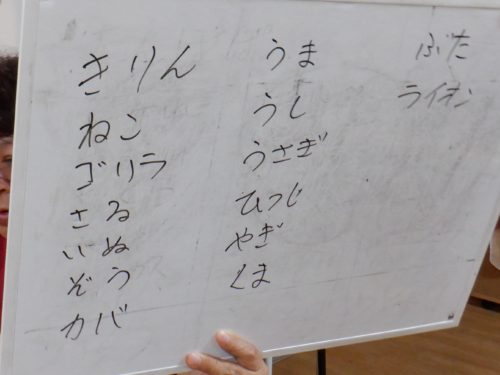 きりん
ねこ
ゴリラ
さる
いぬ
ぞう
カバ
うま
うし
うさぎ
ひつじ
やぎ
くま
ぶた
ライオン